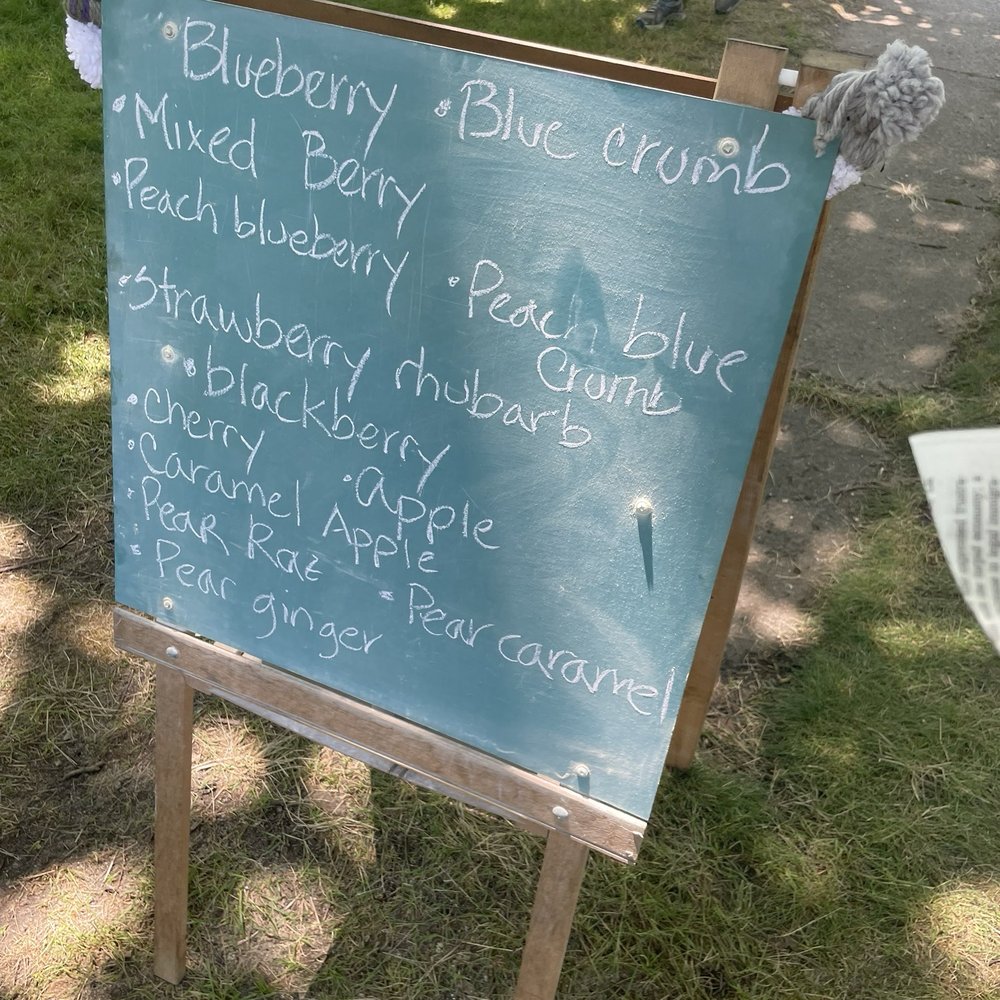 Blueberry
• Blue crumb
• Mixed Berry
• Peach blueberry
• Peach blue
Crumb
• Strawberry rhubarb
• blackberry
• Cherry
• Apple
• Caramel Apple
• Pear Raz
• Pear ginger
• Pear caramel